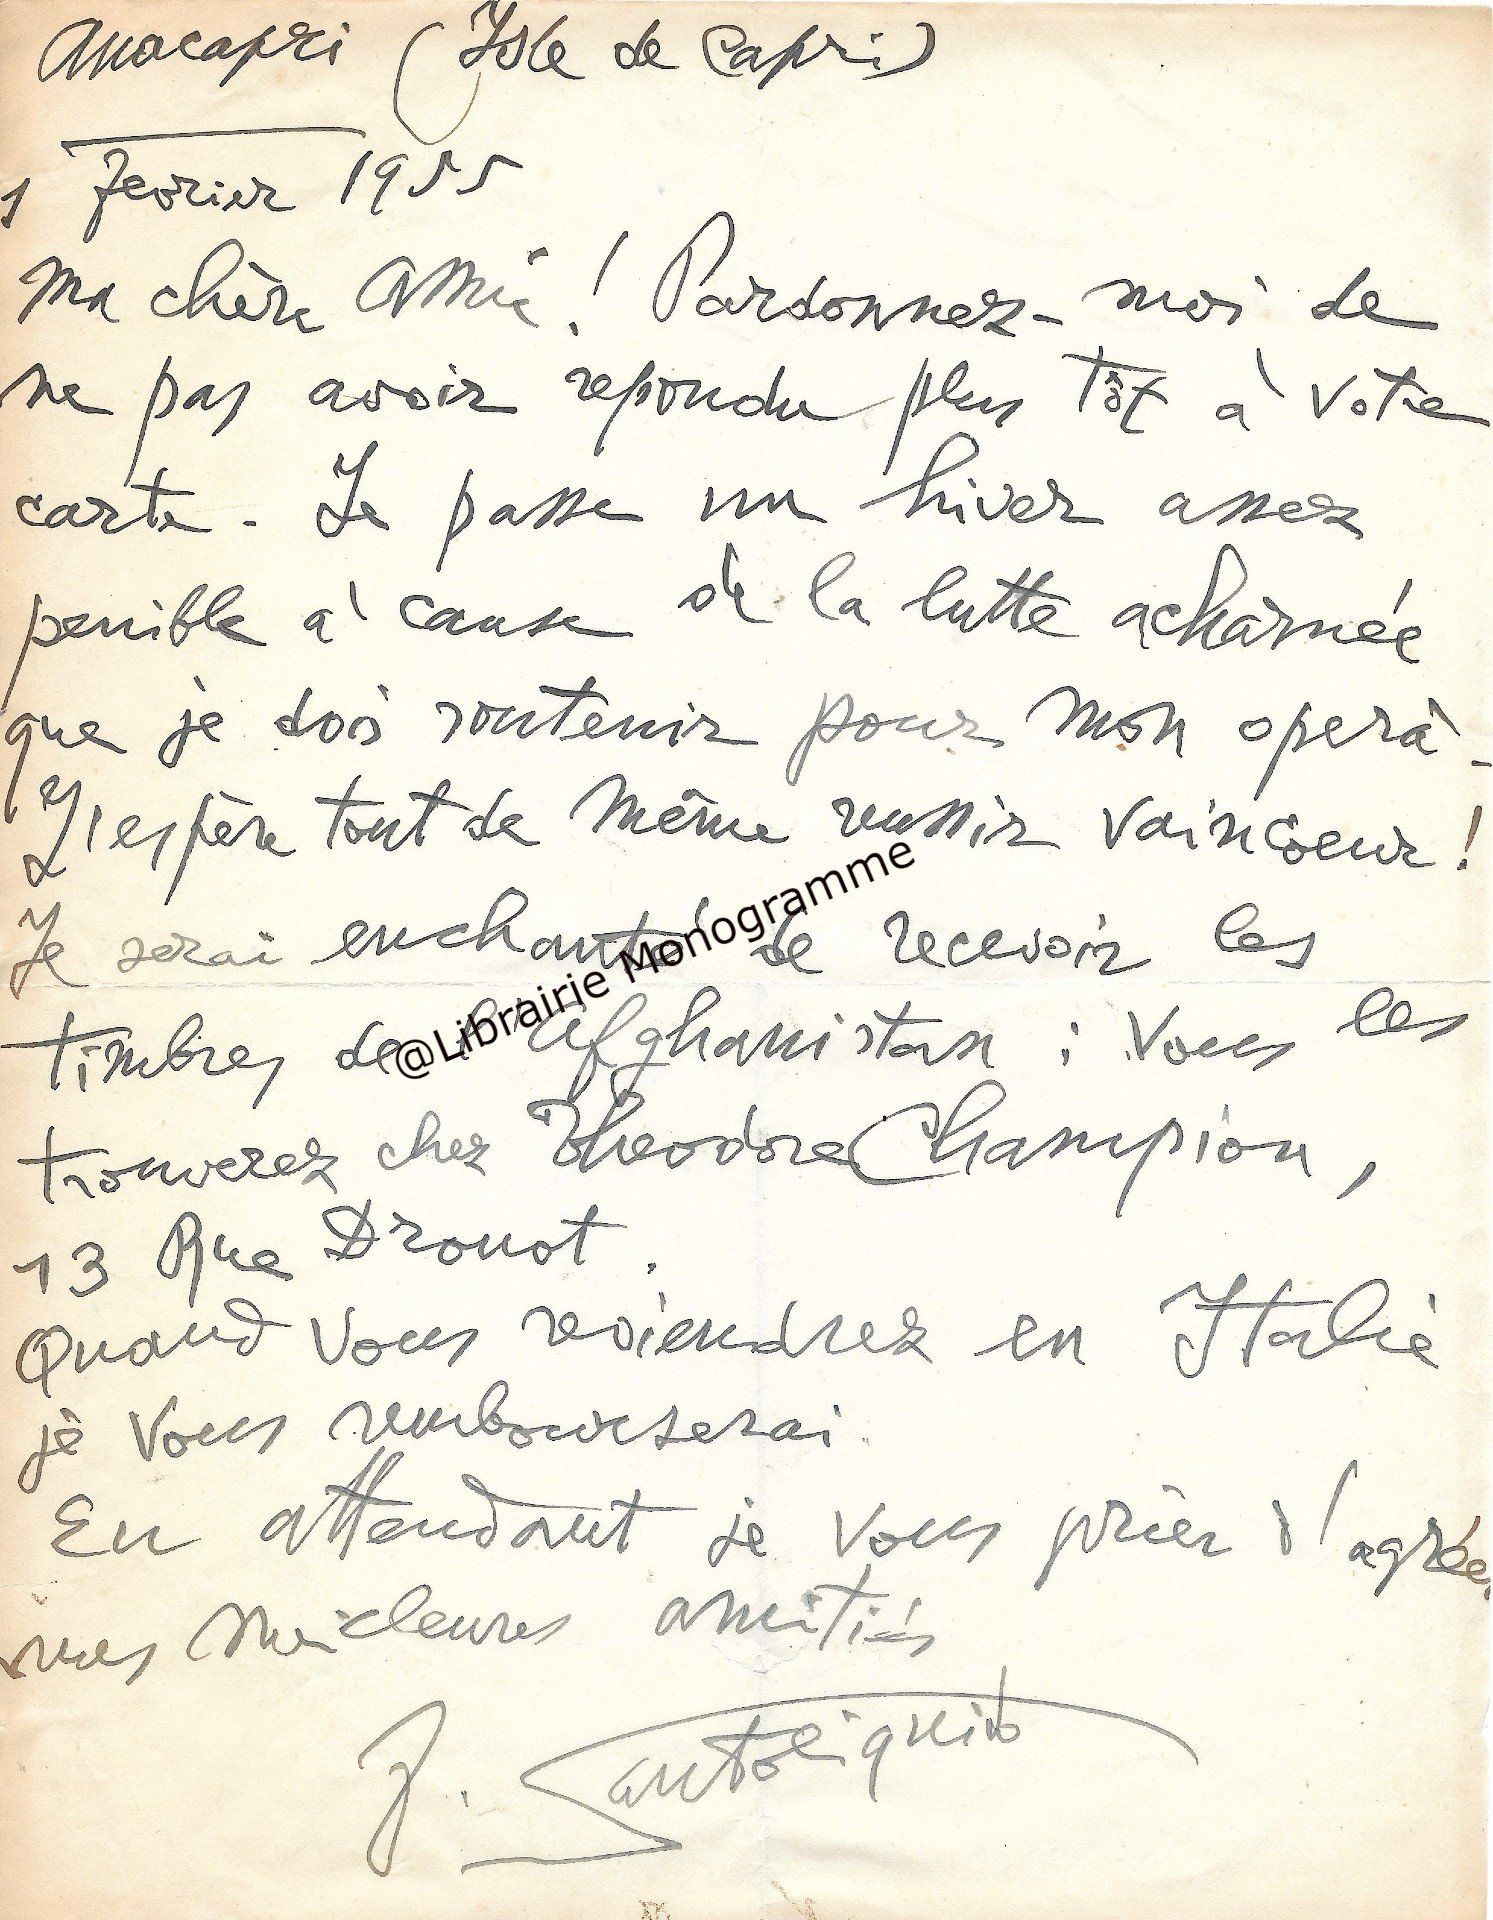 Anacapri (Isle de Capri)
1 fevrier 1955
Ma chère Amie! Pardonnez-moi de
ne pas avoir repondu plus tôt à Votre
carte - Je passe un hiver assez
penible à cause de la lutte acharnée
que je dois soutenir pour mon operà -
J'espère tout de même reussir vaincoeur!
Je serai enchanté de recevoir les
timbres de l'Afghanistan : Vous les
trouverez chez Theodore Champion,
13 Rue Drouot.
Quand Vous reviendrez en Italie
je Vous rembourserai.
En attendant je Vous prier d'agréer
mes meilleures amitiés
F. Santoliquido
@Librairie Monogramme